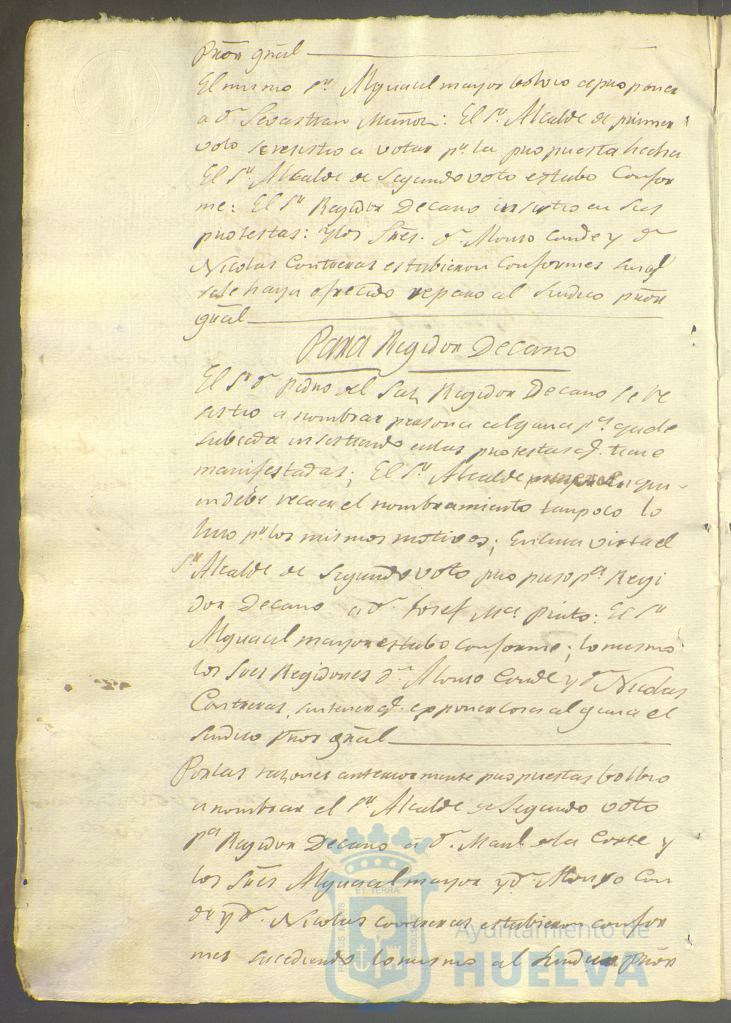 Prõr gñal
El mismo sr Alguacil mayor bolvio a proponer
a dn Sevastian Muñoz: El sr Alcalde de primer
voto se resistio a votar pr la propuesta hecha
El sr Alcalde de Segundo voto estubo Confor
me: El sr Regidor Decano insistio en sus
protestas: y los Sres. dn Alonso Conde y dn
Nicolas Contreras estubieron Conformes sin qe
se le haya ofrecido reparo al Sindico prõr
gñal
Para Regidor Decano
El Sr dn Pedro del Saz Regidor Decano se re
sistio a nombrar persona alguna
insistiendo en las protestas q. tiene
manifestadas; El sr Alcalde en quien
debe recaer el nombramiento tampoco lo
hizo pr los mismos motivos; En cuia virtud el
Sr Alcalde de Segundo voto propuso pa Regi
dor Decano a dn Josef Ma Pinto: El Sr
Alguacil mayor estubo conforme; lo mismo
los Sres Regidores dn Alonso Conde y dn Nicolas
Contreras, sin tener q. exponer cosa alguna el
Sindico prõr gñal
Por las razones anteriormente propuestas bolbio
a nombrar el Sr Alcalde de Segundo voto
pa Regidor Decano a dn Manl de la Corte y
los Sres Alguacil mayor y dn Alonso Con
de y dn Nicolas Contreras estubieron confor
mes sucediendo lo mismo al Sindico prõr
Ayuntamiento de
HUELVA